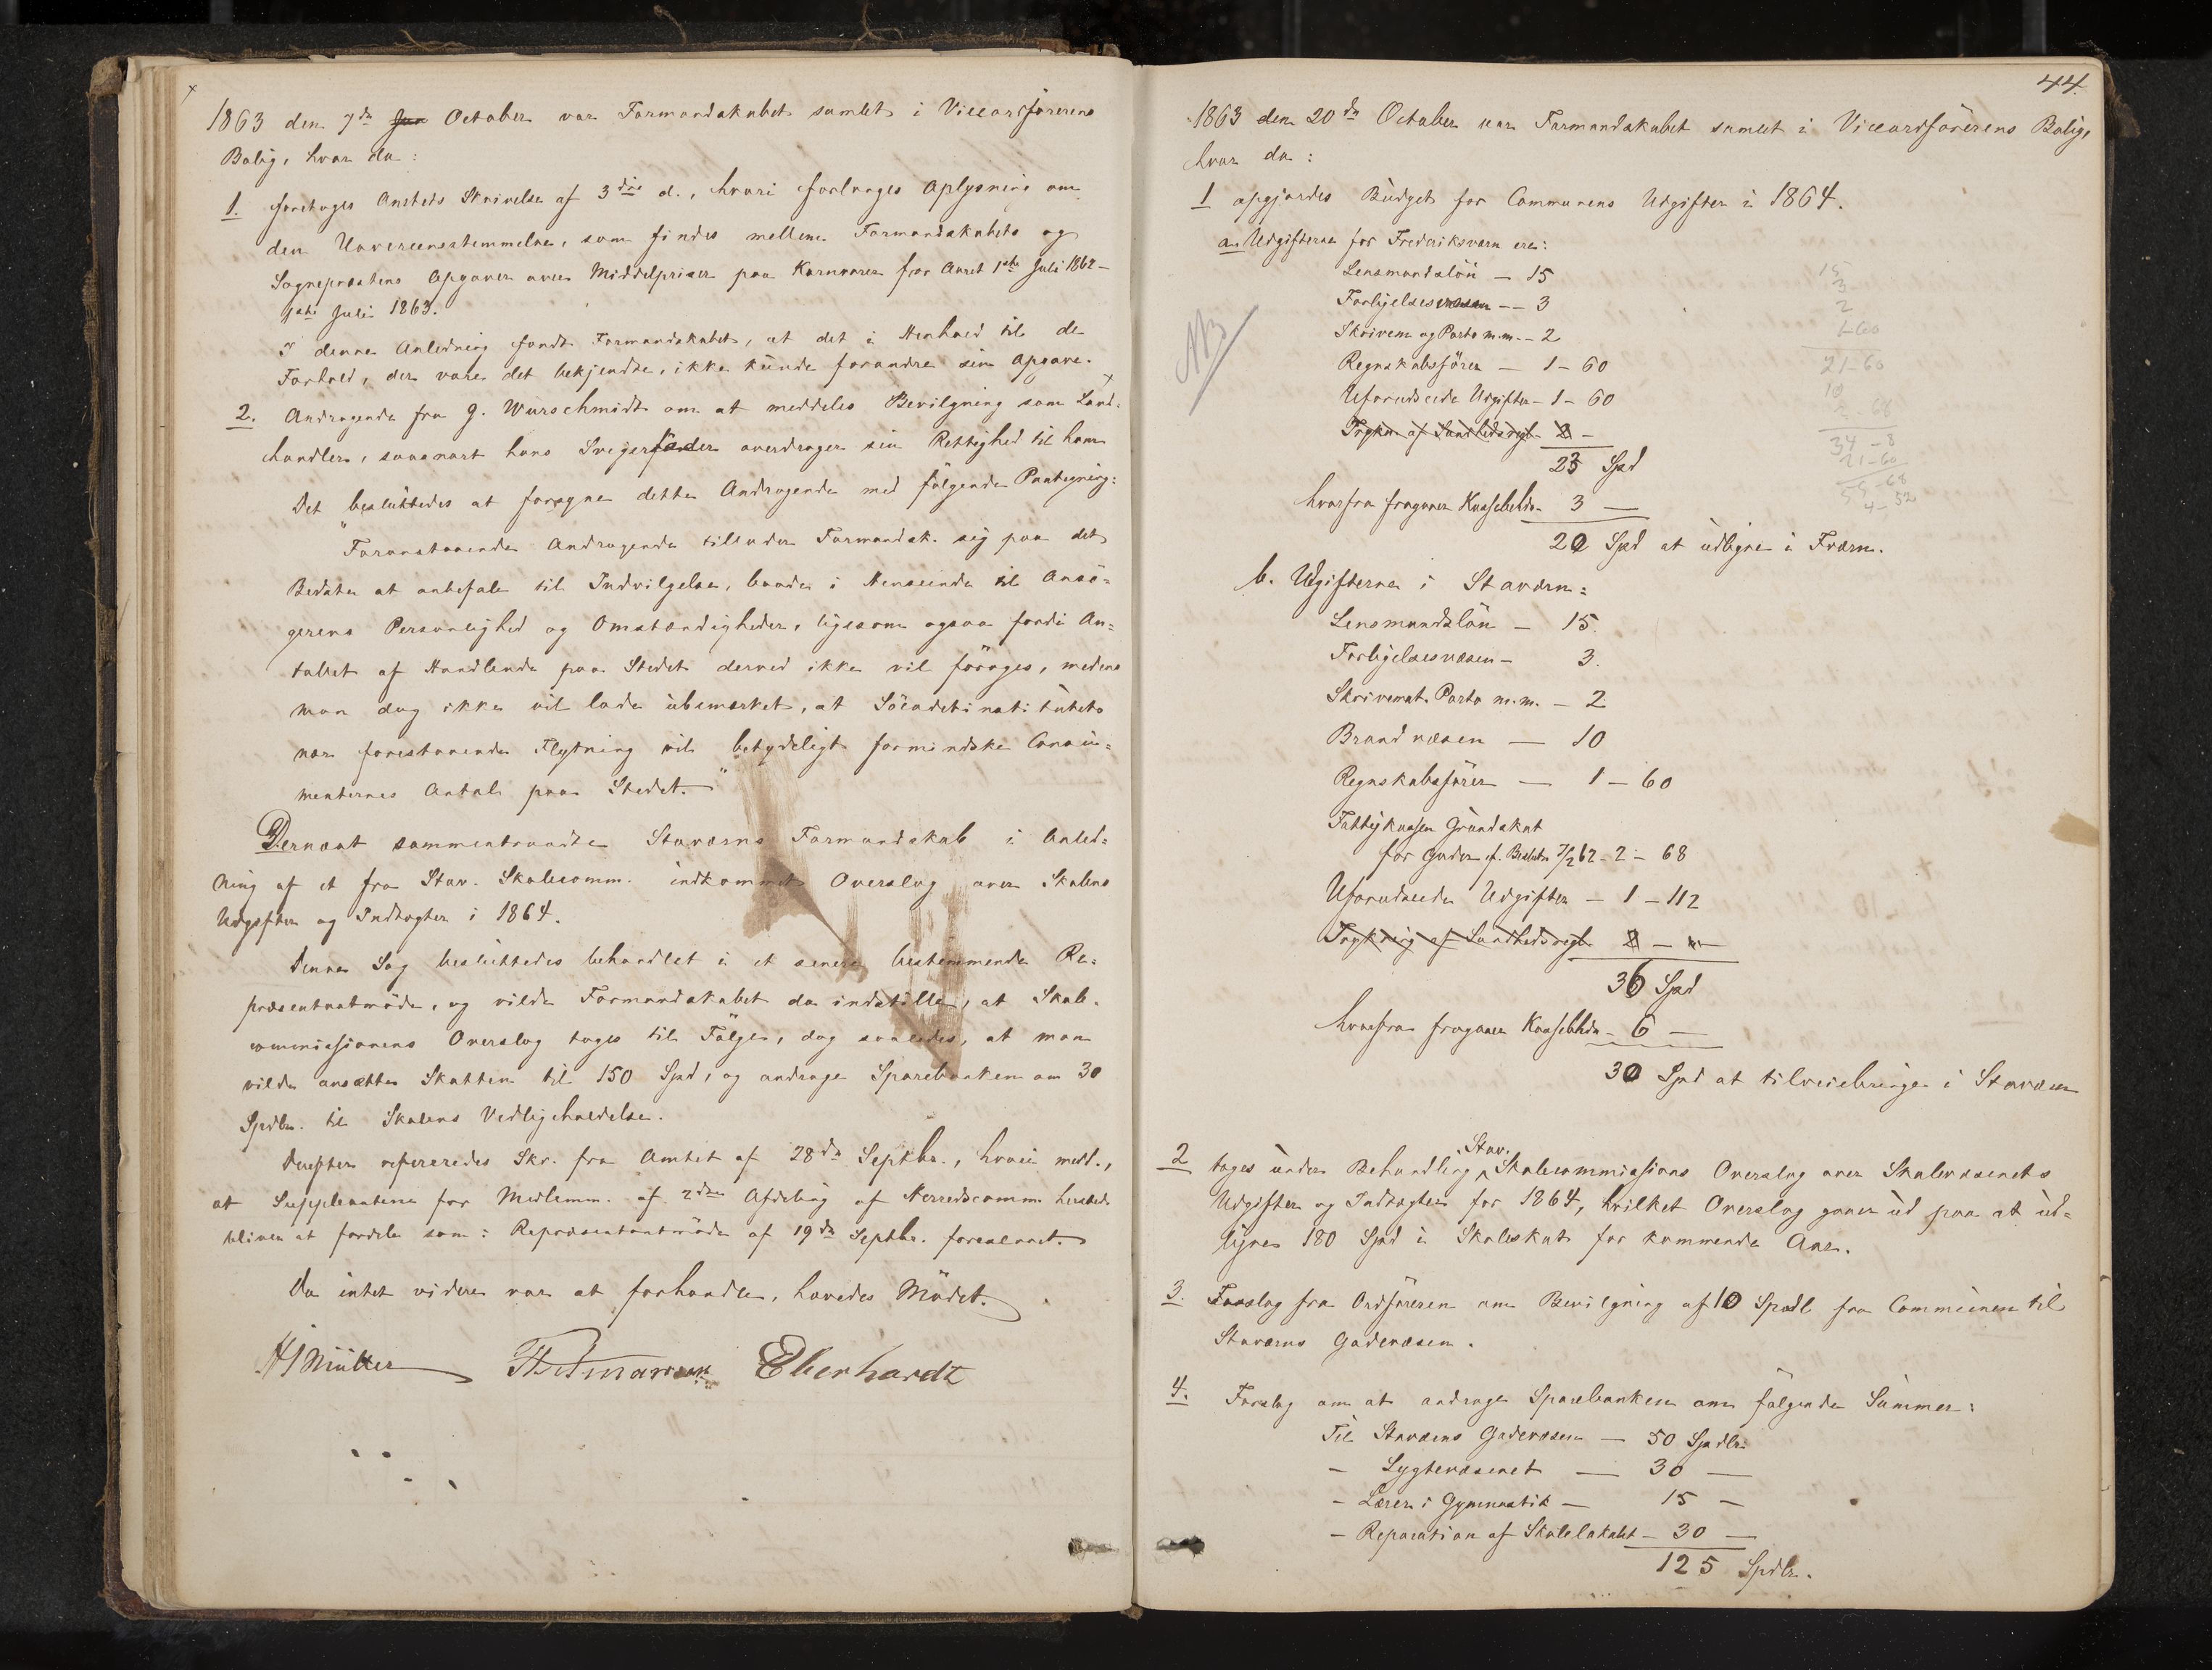 1863 den 7de October var Formandskabet samlet i Viceordförerens
Bolig, hvor da:
1. foretoges Amtets Skrivelse af 3die d., hvori forlanges Oplysning om
den Uovereensstemmelse, som findes mellem Formandskabets og
Sogneprestens Opgaver over Middelpriser paa Kornvarer for Aaret 1ste Juli 1862 -
1ste Juli 1863.
I denne Anledning fandt Formandskabet, at det i Henhold til de
Forhold, der vare det bekjendte, ikke kunde forandre sin Opgave.
2. Andragende fra G. Wurschmidt om at meddeles Bevilgning som Land-
handler, saasnart hans Svigerfader overdrager sin Rettighed til ham
Det besluttedes at forsyne dette Andragende med fölgende Paategning:
"Foranstaaende Andragende tillader Formandsk. sig paa det
Bedste at anbefale til Indvilgelse, baade i Henseende til Ansö=
gerens Personlighed og Omstændigheder, ligesom ogsaa fordi An=
tallet af Handlende paa Stedet derved ikke vil foröges, medens
man dog ikke vil lade ubemærket, at Söcadetinstitutets
nær forestaaende Flytning vil betydeligt formindske Consu=
menternes Antal paa Stedet."
Dernæst sammentraadte Staværns Formandskab i Anled-
ning af et fra Stav. Skolecomm. indkommet Overslag over Skolens
Udgifter og Indtægter i 1864.
Denne Sag besluttedes behandlet i et senere bestemmende Re=
præsentantmöde, og vilde Formandskabet da indstille, at Skole-
commissionens Overslag toges til Fölge, dog saaledes, at man
vilde ansætte Skatten til 150 Spd, og andrage Sparebanken om 30
Spdlr. til Skolens Vedligeholdelse.
Derefter refereredes Skr. fra Amtet af 28de Septbr., hvori medd.,
at Suppleanterne for Medlemm. af 2den Afdeling af Herredscomm.
bliver at fordele som i Repræsentantmöde af 19de Septbr. foreslaaet.
Da intet videre var at forhandle, hævedes Mödet.
Müller Eberhardt
44.
1863 den 20de October var Formandskabet samlet i Viceordförerens Bolig,
hvor da:
1 opgjordes Budget for Communens Udgifter i 1864.
a. Udgifterne for Frederiksværn ere:
Lensmandslön — 15
Forligelsesvæsen — 3
Skrivem og Porto m.m. — 2
Regnskabsförer — 1 - 60
Uforudseede Udgifter - 1 - 60
Trykn. af Sundhedsregl. 2 -
23 Spd
hvorfra fragaaer Kassebeholdn. 3 —
20 Spd at udligne i Fværn.
b. Udgifterne i Staværn:
Lensmandslön — 15.
Forligelsesvæsen — 3.
Skrivemat. Porto m.m. — 2
Brandvæsen — 10
Regnskabsförer — 1 - 60
Fattigkassen Grundskat
for Gader cf. Beslutn. 7/2 62 - 2 - 68
Uforudseede Udgifter — 1 - 112
Trykning af Sundhedsregl. 2 -
36 Spd
hvorfra fragaaer Kassebehdn. - 6 —
30 Spd at tilveiebringe i Staværn
2 toges under Behandling Stav. Skolecommissions Overslag over Skolevæsenets
Udgifter og Indtægter for 1864, hvilket Overslag gaaer ud paa at ud=
ligne 180 Spd i Skoleskat for kommende Aar.
3. Forslag fra Ordföreren om Bevilgning af 10 Spdl fra Communen til
Staværns Gadevæsen.
4. Forslag om at andrage Sparebanken om fölgende Summer:
Til Staværns Gadevæsen — 50 Spdlr.
- Lygtevæsenet — 30 —
- Lærer i Gymnastik — 15 —
- Reparation af Skolelokalet — 30 —
125 Spdlr.
NB
15
3
2
1-60
21-60
10
2-68
34-8
21-60
55-68
4-52